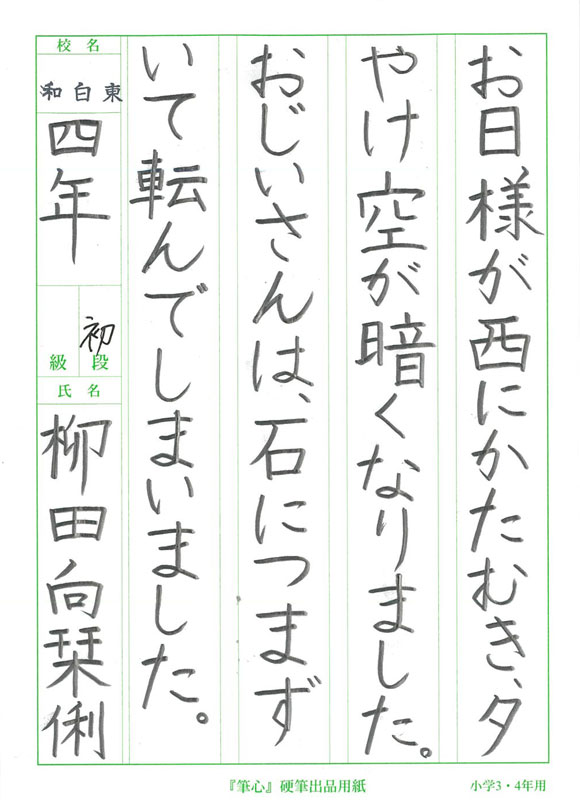 お日様が西にかたむき、夕
やけ空が暗くなりました。
おじいさんは、石につまず
いて転んでしまいました。
校名
和白東
四年
初段
級
氏名
柳田向栞俐
『筆心』硬筆出品用紙
小学3・4年用